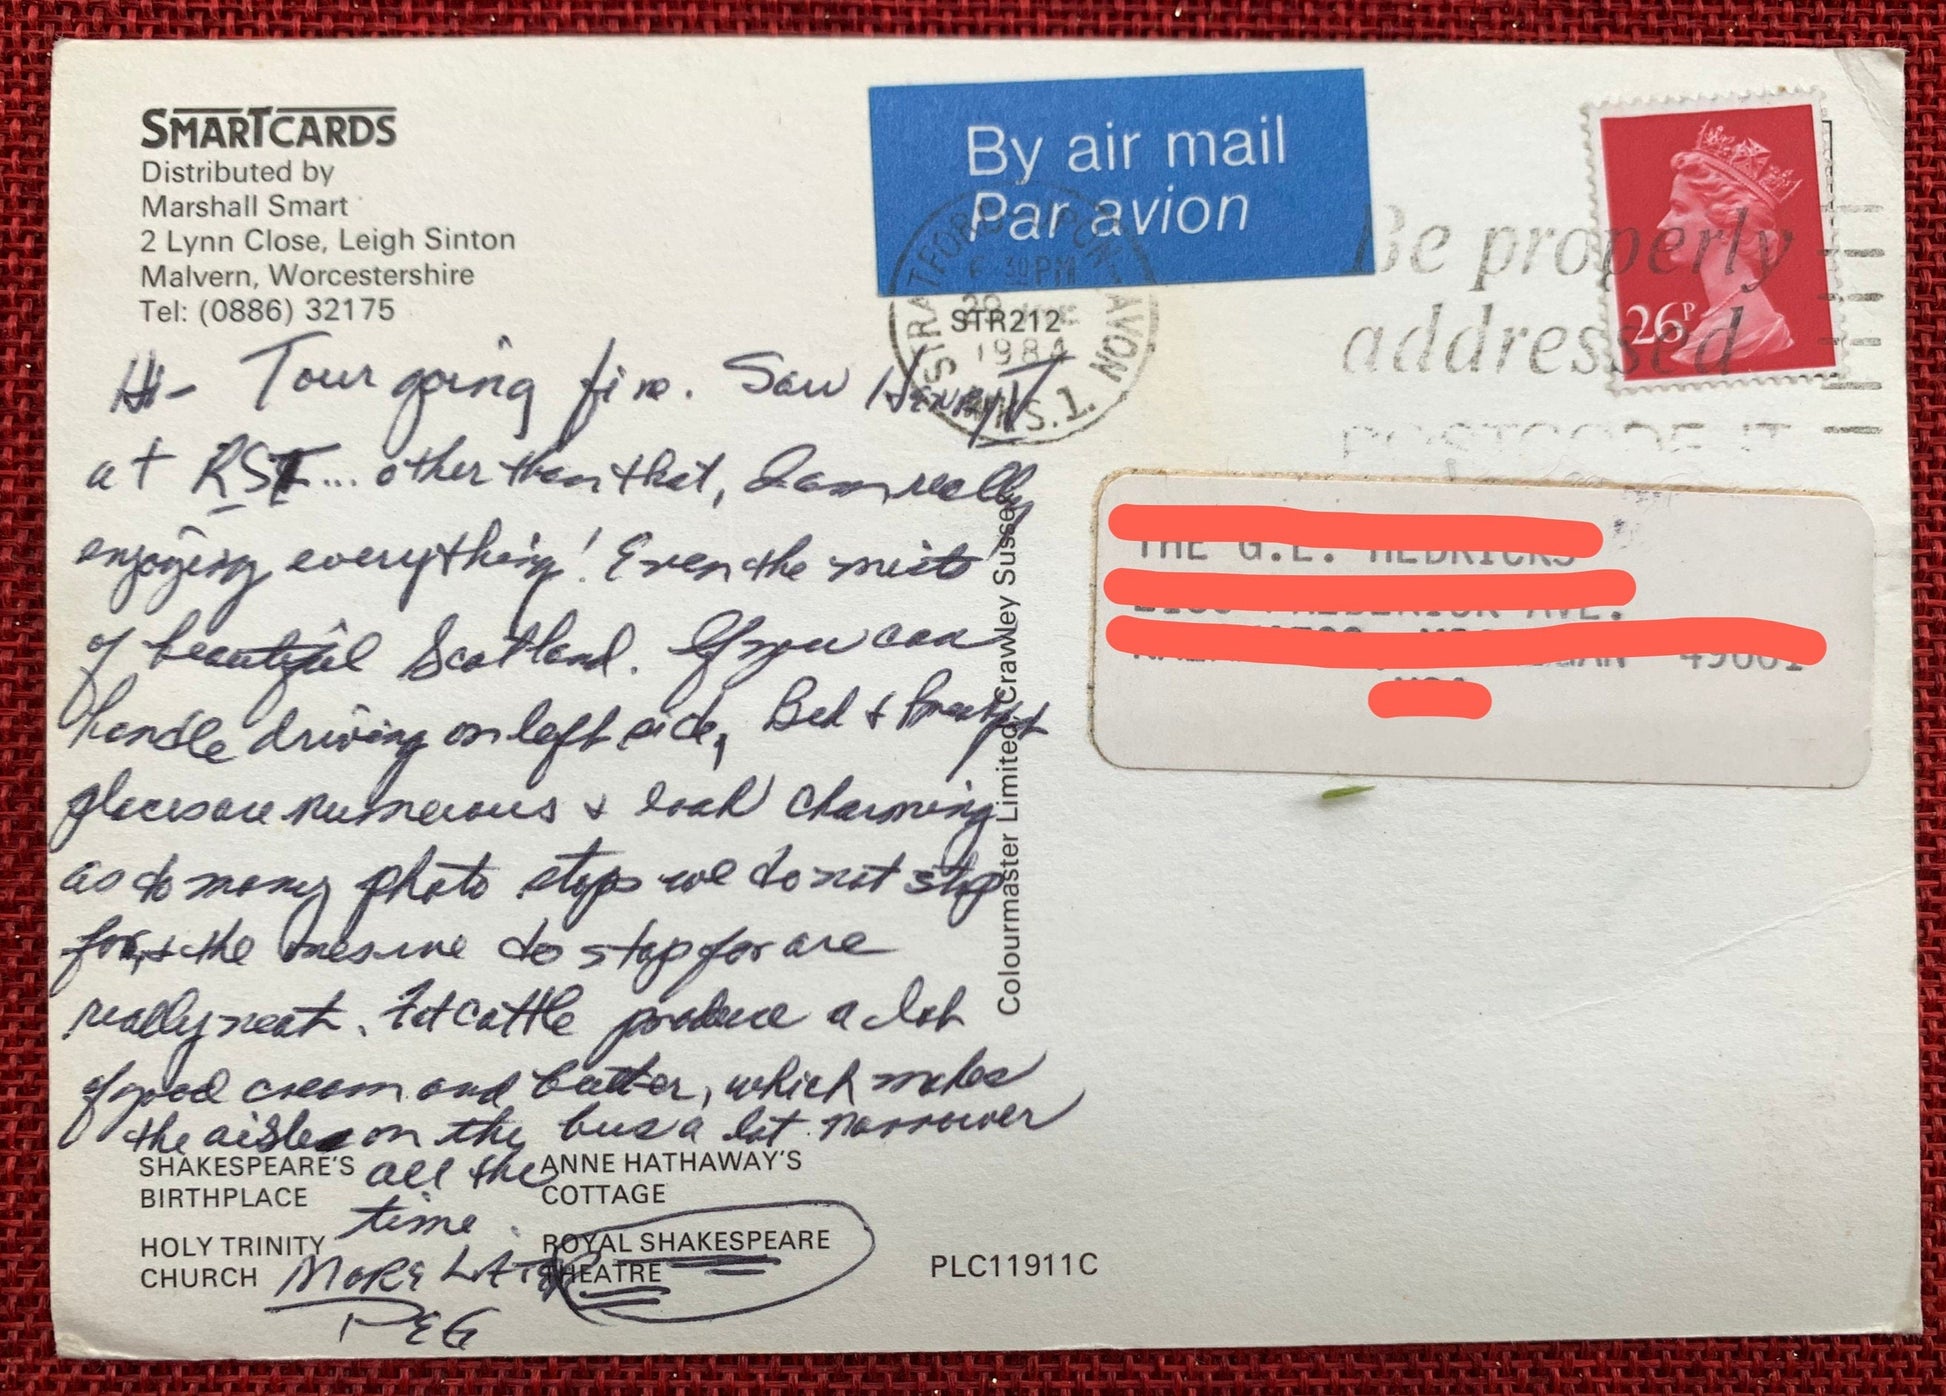 SMARTCARDS
Distributed by
Marshall Smart
2 Lynn Close, Leigh Sinton
Malvern, Worcestershire
Tel: (0886) 32175
By air mail
Par avion
STRATFORD UPON AVON
6 30PM
1984
STR212
Be properly
addressed
POSTCODE IT
26P
Hi - Tour going fine. Saw Henry V
at RST... other than that, I am really
enjoying everything! Even the mists
of beautiful Scotland. If you can
handle driving on left side, Bed + Breakfast
places are numerous + look charming
as do many photo stops we do not stop
for, + the ones we do stop for are
really neat. Fat cattle produce a lot
of good cream and butter, which makes
the aisle on the bus a lot narrower
all the
time.
MORE LATER
PEG
Colourmaster Limited Crawley Sussex
SHAKESPEARE'S
BIRTHPLACE
ANNE HATHAWAY'S
COTTAGE
HOLY TRINITY
CHURCH
ROYAL SHAKESPEARE
THEATRE
PLC11911C